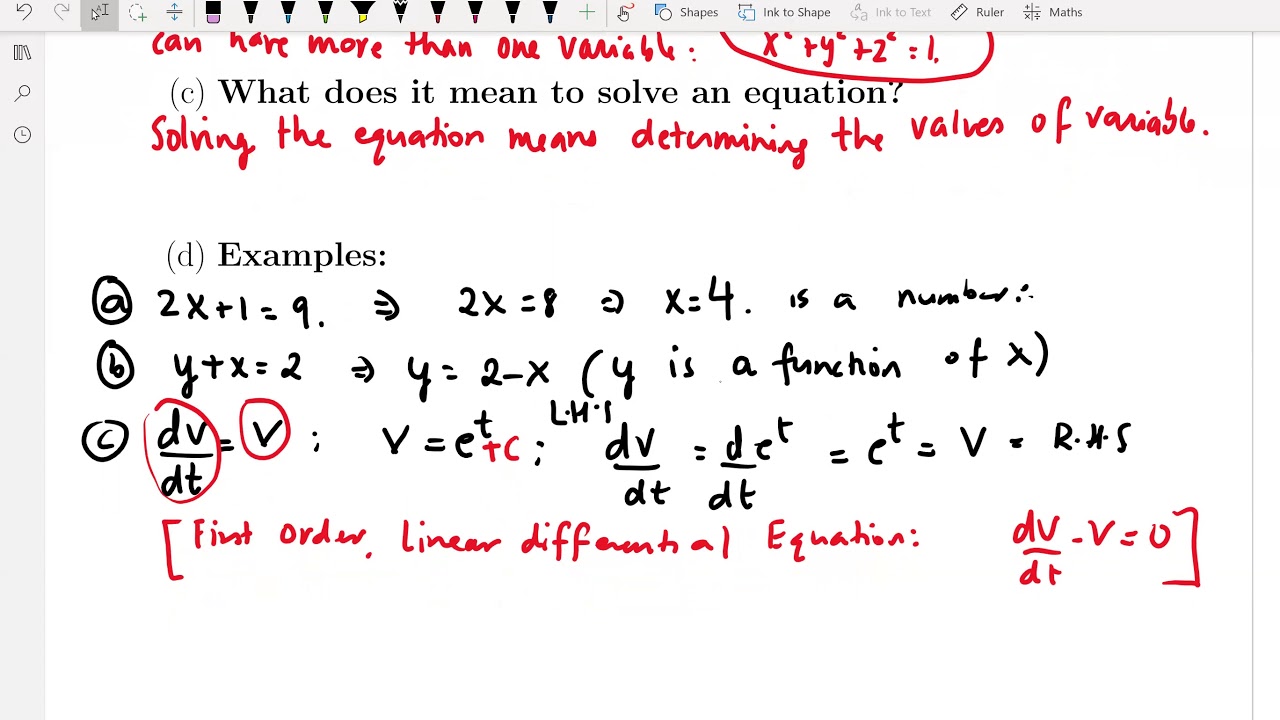 Shapes Ink to Shape Ink to Text Ruler Maths
can have more than one variable: x² + y² + z² = 1.
(c) What does it mean to solve an equation?
Solving the equation means determining the values of variable.
(d) Examples:
(a) 2x+1 = 9. ⇒ 2x = 8 ⇒ x = 4. is a number.
(b) y+x = 2 ⇒ y = 2-x (y is a function of x)
L.H.S
(c) dv/dt = v ; v = e^t +c ; dv/dt = d/dt e^t = e^t = v = R.H.S
[First order, linear differential Equation: dv/dt - v = 0]